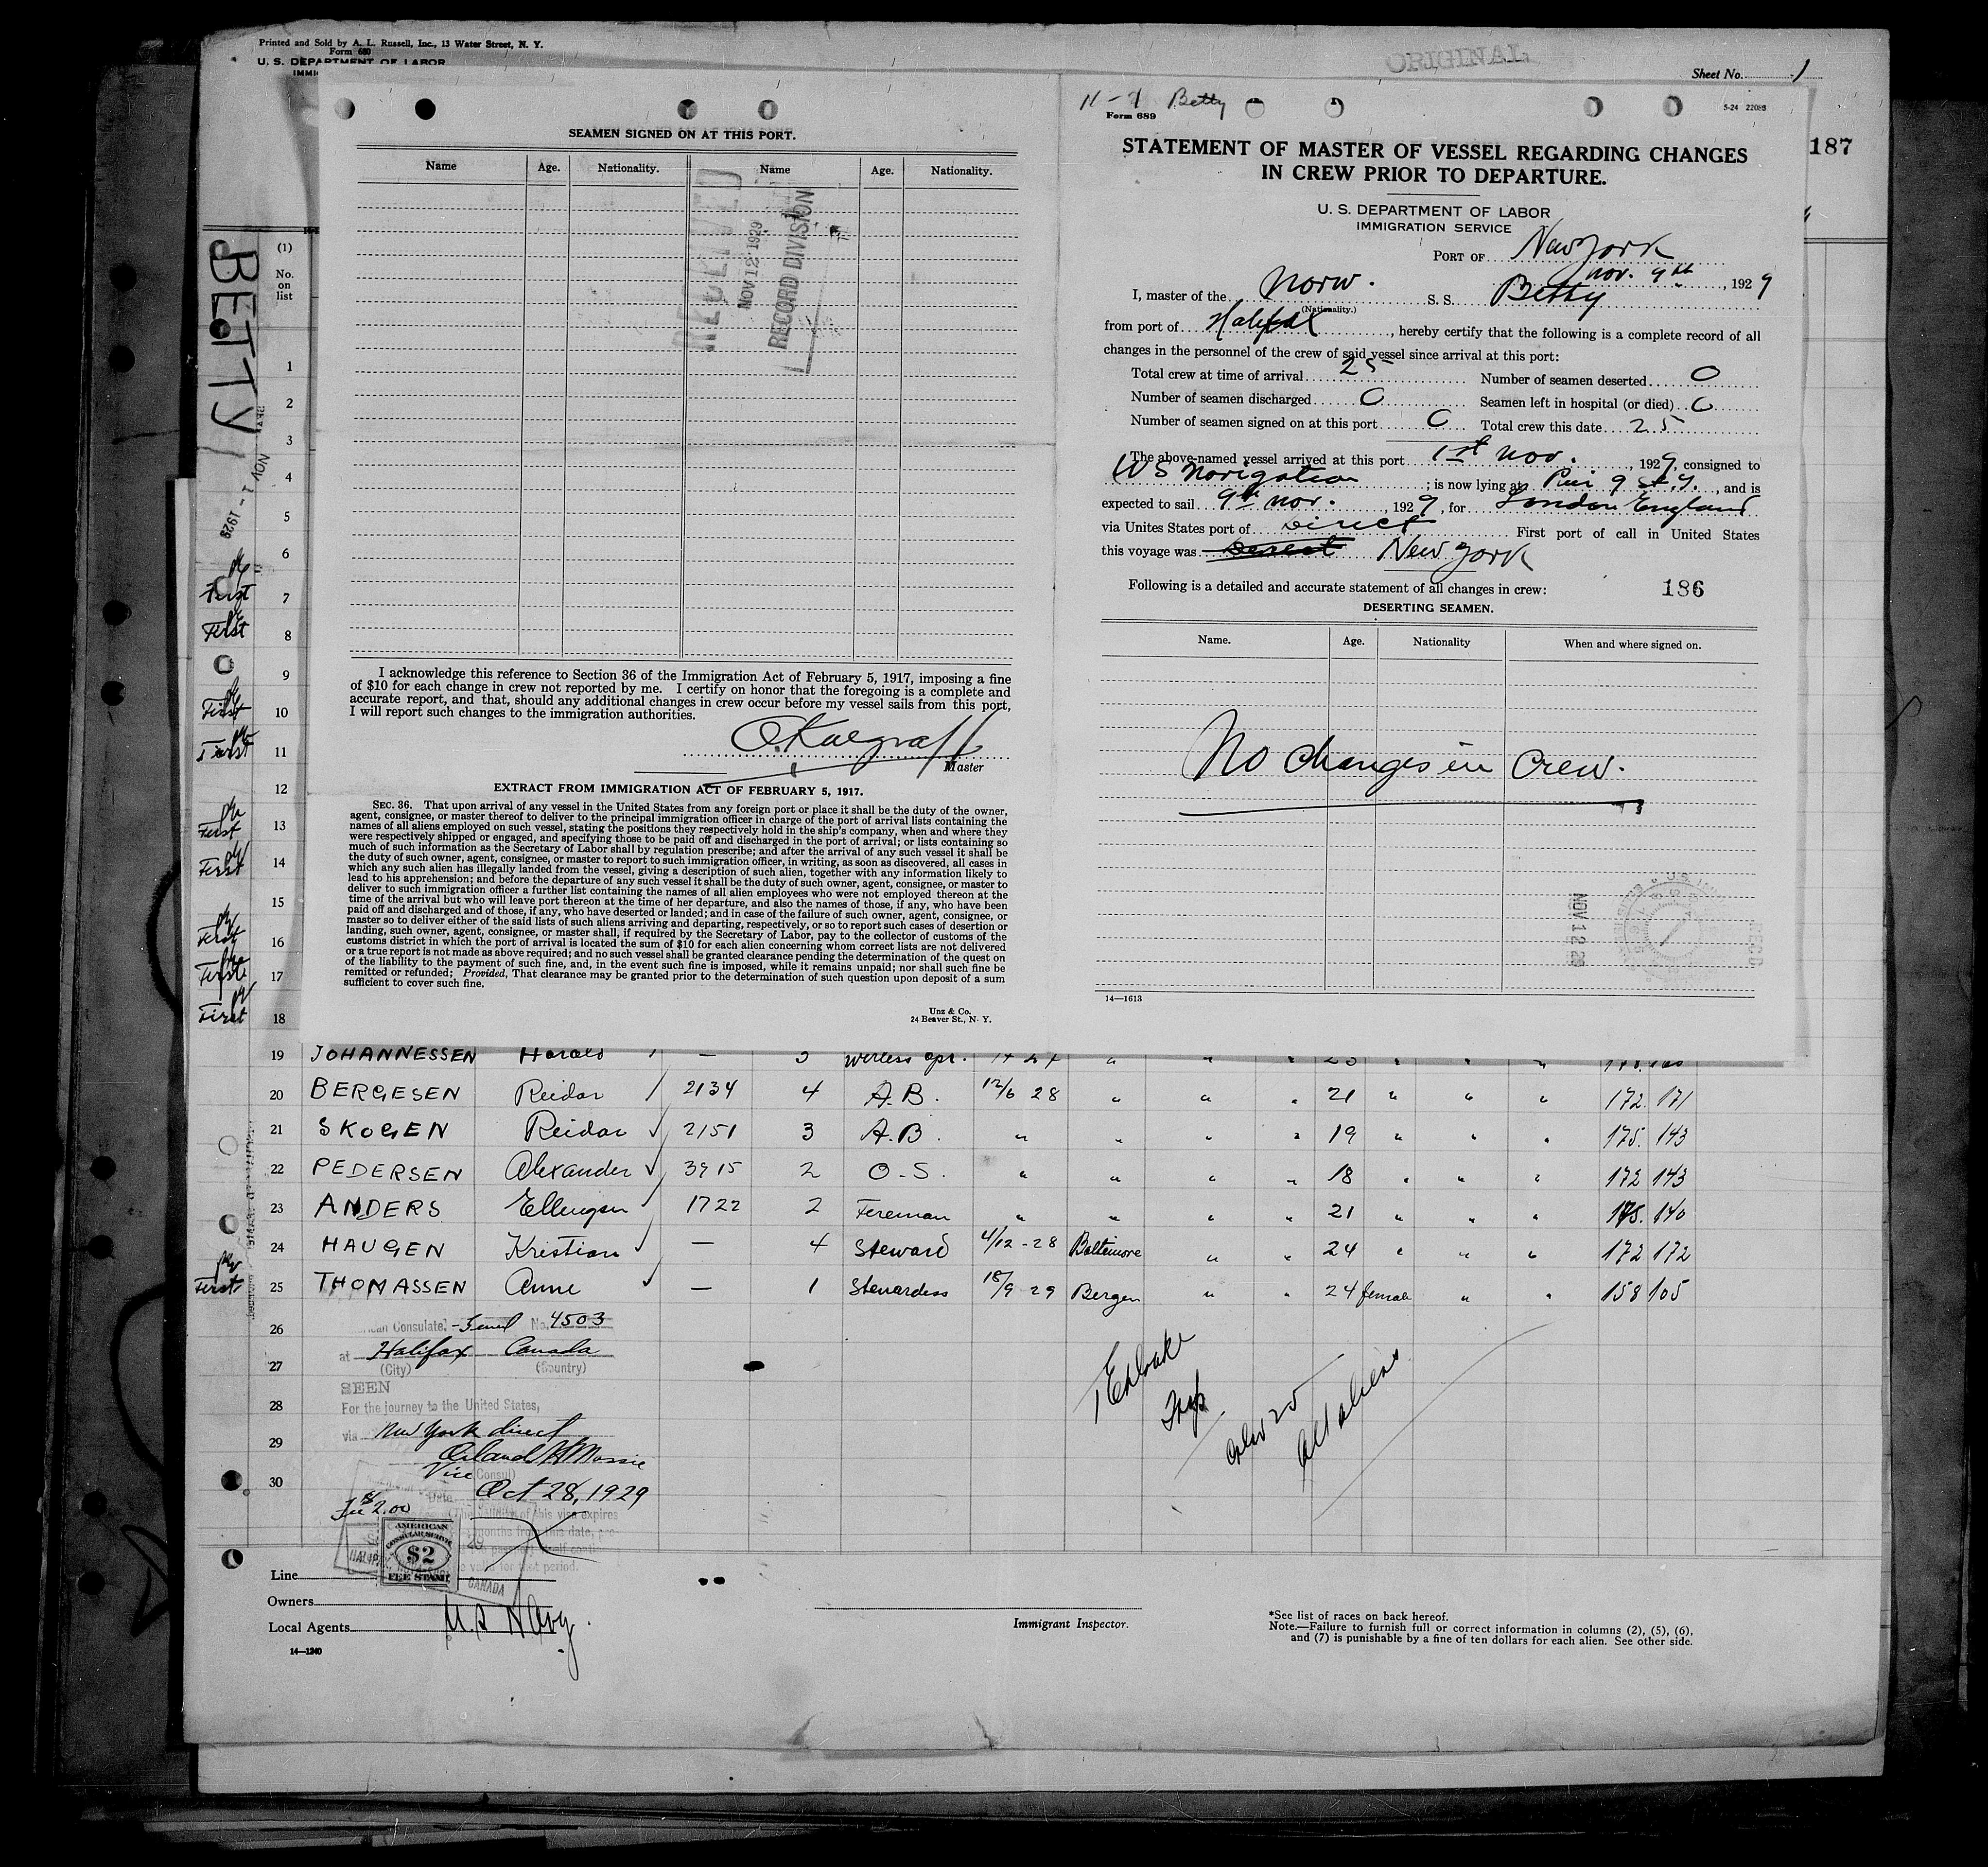 Printed and Sold by A. L. Russell, Inc., 13 Water Street, N. Y.
Form 680
U. S. DEPARTMENT OF LABOR
ORIGINAL
Sheet No. 1
187
BETTY
NOV 1 - 1929
(1)
No. on list
1
2
3
4
5
6
First 7
First 8
9
First 10
First 11
12
First 13
First 14
15
First 16
First 17
First 18
SEAMEN SIGNED ON AT THIS PORT.
Name Age. Nationality. Name Age. Nationality.
RECEIVED
NOV 12 1929
RECORD DIVISION
I acknowledge this reference to Section 36 of the Immigration Act of February 5, 1917, imposing a fine
of $10 for each change in crew not reported by me. I certify on honor that the foregoing is a complete and
accurate report, and that, should any additional changes in crew occur before my vessel sails from this port,
I will report such changes to the immigration authorities.
Master
EXTRACT FROM IMMIGRATION ACT OF FEBRUARY 5, 1917.
SEC. 36. That upon arrival of any vessel in the United States from any foreign port or place it shall be the duty of the owner,
agent, consignee, or master thereof to deliver to the principal immigration officer in charge of the port of arrival lists containing the
names of all aliens employed on such vessel, stating the positions they respectively hold in the ship's company, when and where they
were respectively shipped or engaged, and specifying those to be paid off and discharged in the port of arrival; or lists containing so
much of such information as the Secretary of Labor shall by regulation prescribe; and after the arrival of any such vessel it shall be
the duty of such owner, agent, consignee, or master to report to such immigration officer, in writing, as soon as discovered, all cases in
which any such alien has illegally landed from the vessel, giving a description of such alien, together with any information likely to
lead to his apprehension; and before the departure of any such vessel it shall be the duty of such owner, agent, consignee, or master to
deliver to such immigration officer a further list containing the names of all alien employees who were not employed thereon at the
time of the arrival but who will leave port thereon at the time of her departure, and also the names of those, if any, who have been
paid off and discharged and of those, if any, who have deserted or landed; and in case of the failure of such owner, agent, consignee, or
master so to deliver either of the said lists of such aliens arriving and departing, respectively, or so to report such cases of desertion or
landing, such owner, agent, consignee, or master shall, if required by the Secretary of Labor, pay to the collector of customs of the
customs district in which the port of arrival is located the sum of $10 for each alien concerning whom correct lists are not delivered
or a true report is not made as above required; and no such vessel shall be granted clearance pending the determination of the quest on
of the liability to the payment of such fine, and, in the event such fine is imposed, while it remains unpaid; nor shall such fine be
remitted or refunded; Provided, That clearance may be granted prior to the determination of such question upon deposit of a sum
sufficient to cover such fine.
Unz & Co.
24 Beaver St., N. Y.
11-1 Betty
Form 689
5-24 22083
STATEMENT OF MASTER OF VESSEL REGARDING CHANGES
IN CREW PRIOR TO DEPARTURE.
U. S. DEPARTMENT OF LABOR
IMMIGRATION SERVICE
PORT OF New York
Nov. 9th, 1929
I, master of the Norw. S. S. Betty
(Nationality.)
from port of Halifax, hereby certify that the following is a complete record of all
changes in the personnel of the crew of said vessel since arrival at this port:
Total crew at time of arrival 25 Number of seamen deserted 0
Number of seamen discharged 0 Seamen left in hospital (or died) 0
Number of seamen signed on at this port 0 Total crew this date 25
The above-named vessel arrived at this port 1st Nov., 1929, consigned to
US Navigation; is now lying at Pier 9, and is
expected to sail 9th Nov., 1929, for London England
via Unites States port of Direct First port of call in United States
this voyage was Direct New York
Following is a detailed and accurate statement of all changes in crew: 186
DESERTING SEAMEN.
Name. Age. Nationality When and where signed on.
No changes in Crew.
NOV 12 29
14—1613
19 JOHANNESSEN Harald 3 Wireless opr. 23
20 BERGESEN Reidar 2134 4 A.B. 12/6 28 " " " 21 " " " 172. 171
21 SKOGEN Reidar 2151 3 A.B. " " " " 19 " " " 175. 143
22 PEDERSEN Alexander 3915 2 O.S. " " " " 18 " " " 172 143
23 ANDERS Ellingsen 1722 2 Fireman " " " " 21 " " " 140
24 HAUGEN Kristian — 4 Steward 4/12-28 Baltimore " " 24 " " " 172 172
First 25 THOMASSEN Anne — 1 Stewardess 18/9 29 Bergen " " 24 female " " 158 105
26 American Consulate No. 4503
at Halifax Canada
27 (City) (Country)
SEEN
28 For the journey to the United States,
via New York direct
29
Vice Consul
30 Oct 28, 1929
Fee $2.00
AMERICAN
CONSULAR SERVICE
$2
FEE STAMP
CANADA
All aliens
Line
Owners
Local Agents U.S. Navg.
14—1240
Immigrant Inspector.
*See list of races on back hereof.
Note.—Failure to furnish full or correct information in columns (2), (5), (6),
and (7) is punishable by a fine of ten dollars for each alien. See other side.